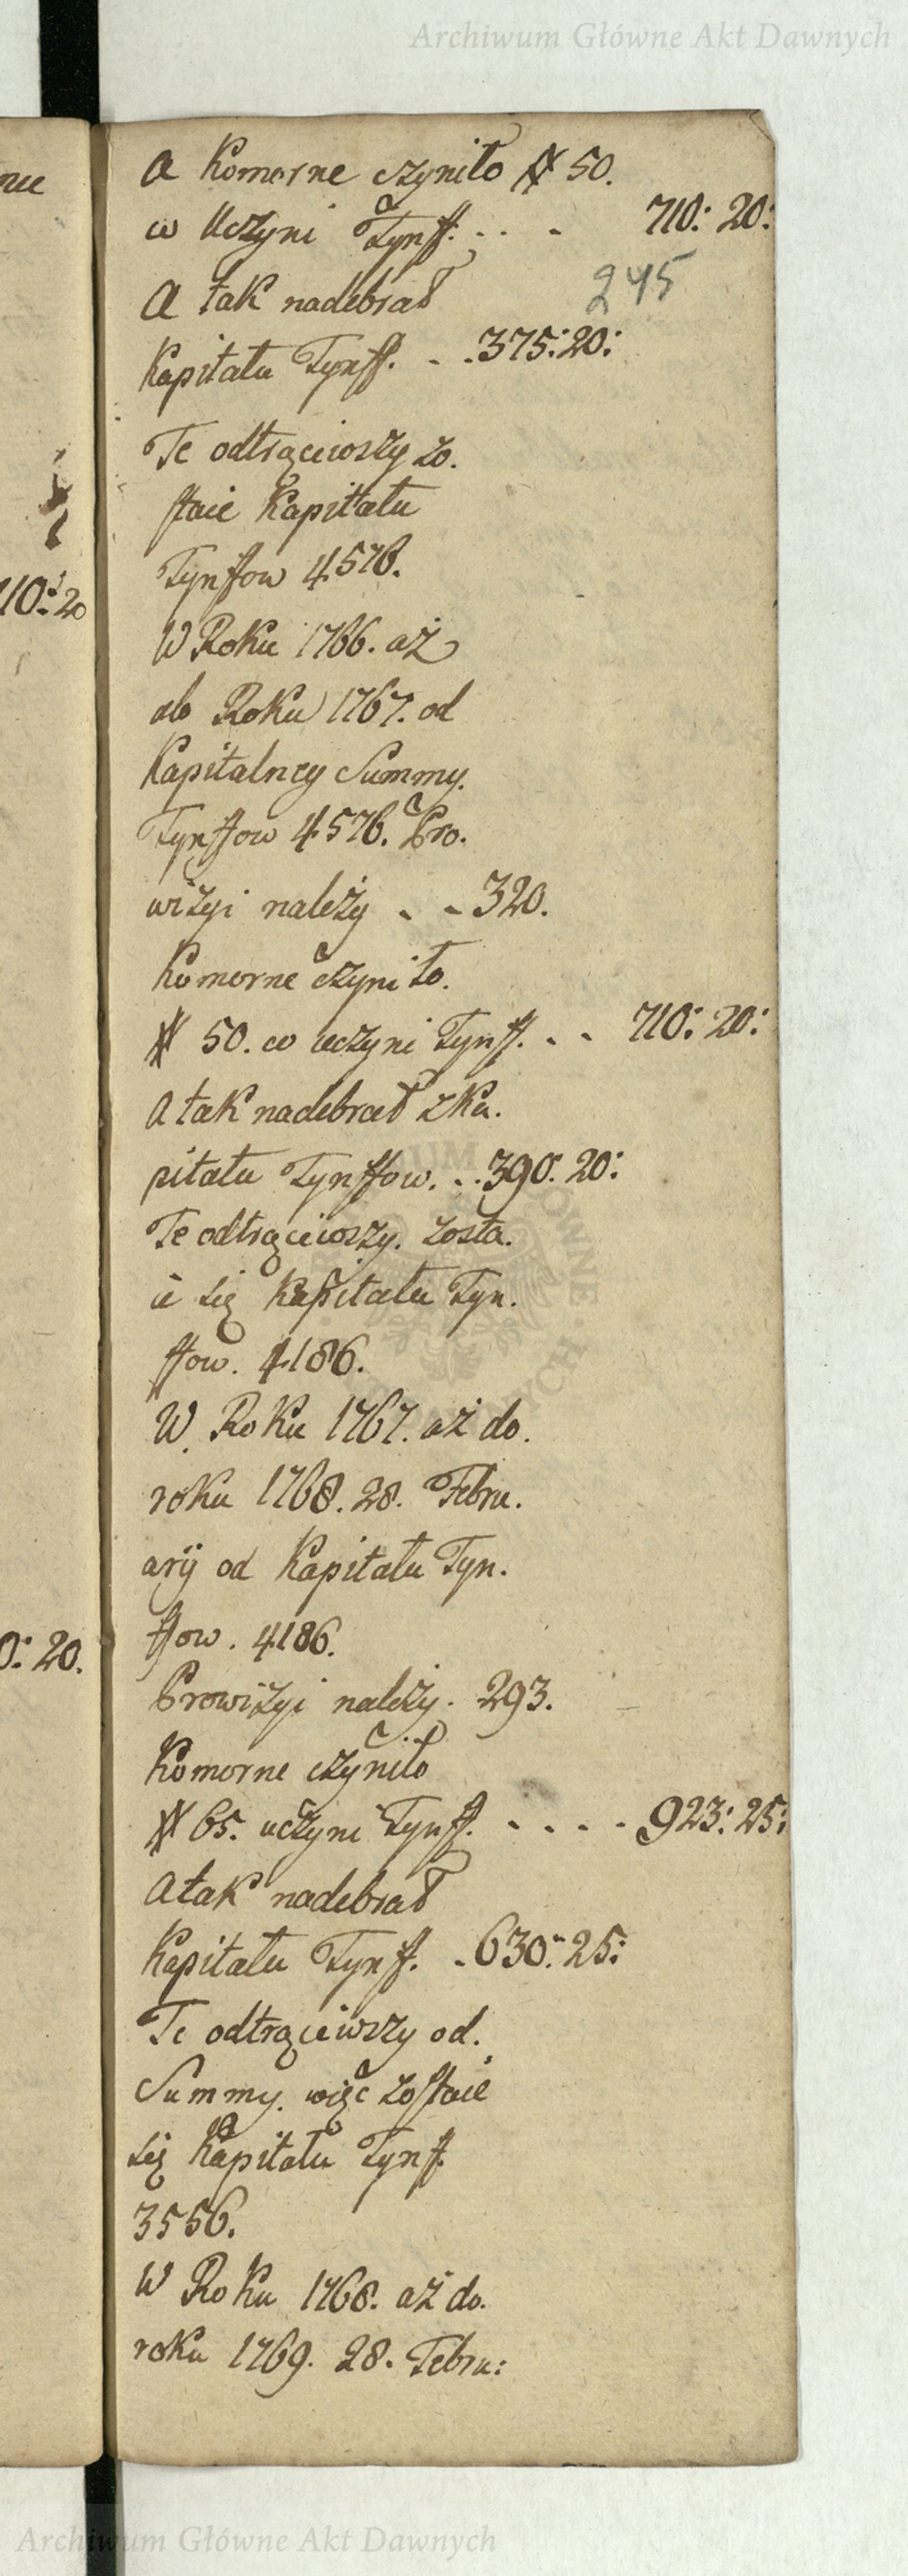 Archiwum Główne Akt Dawnych
nie
A Komorne czyniło # 50.
co Uczyni Tynff. . . . 710: 20:
245
A tak nadebrał
Kapitału Tynff. . . 375: 20:
Te odtrąciwszy zo.
staie Kapitału
Tynffow 4576.
10: 20
W Roku 1766. aż
do Roku 1767. od
Kapitalney Summy.
Tynffow 4576. Pro.
wizyi należy . . 320.
Komorne czyniło.
# 50. co uczyni Tynff. . . 710: 20:
A tak nadebrał z Ka.
pitału Tynffow. . . 390: 20:
Te odtrąciwszy. zosta.
ie się Kapitału Tyn.
ffow. 4186.
W. Roku 1767. aż do.
roku 1768. 28. Febru.
arij od Kapitału Tyn.
ffow. 4186.
0: 20.
Prowizyi należy. 293.
Komorne czyniło
# 65. uczyni Tynff. . . . . 923: 25:
A tak nadebrał
Kapitału Tynff. . 630: 25:
Te odtrąciwszy od.
Summy. więc zostaie
się Kapitału Tynff
3556.
W Roku 1768. aż do.
roku 1769. 28. Febru:
Archiwum Główne Akt Dawnych